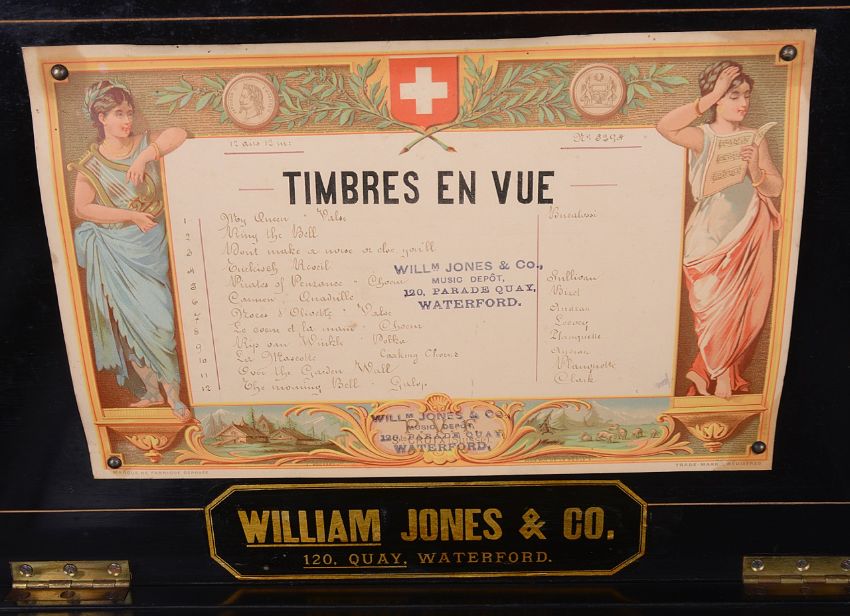 12 airs 12 in:
No 8294
TIMBRES EN VUE
1 My Queen - Valse Bucalossi
2 Ring the Bell
3 Dont make a noise or else you'll
4 Turkisch Reveil
5 Pirates of Penzance - Choeur Sullivan
6 Carmen, Quadrille Bizet
7 Noces d'Olivette - Valse Audran
8 Le coeur et la main - Choeur Lecocq
9 Rip van Winkle - Polka Planquette
10 La Mascotte Coaking Chorus Audran
11 Over the Garden Wall
12 The morning Bell - Galop Clark
WILLM JONES & CO.,
MUSIC DEPÔT,
120, PARADE QUAY,
WATERFORD.
WILLM JONES & CO.,
MUSIC DEPÔT,
120, PARADE QUAY,
WATERFORD.
MARQUE DE FABRIQUE DÉPOSÉE
TRADE-MARK REGISTRED
WILLIAM JONES & CO.
120, QUAY, WATERFORD.